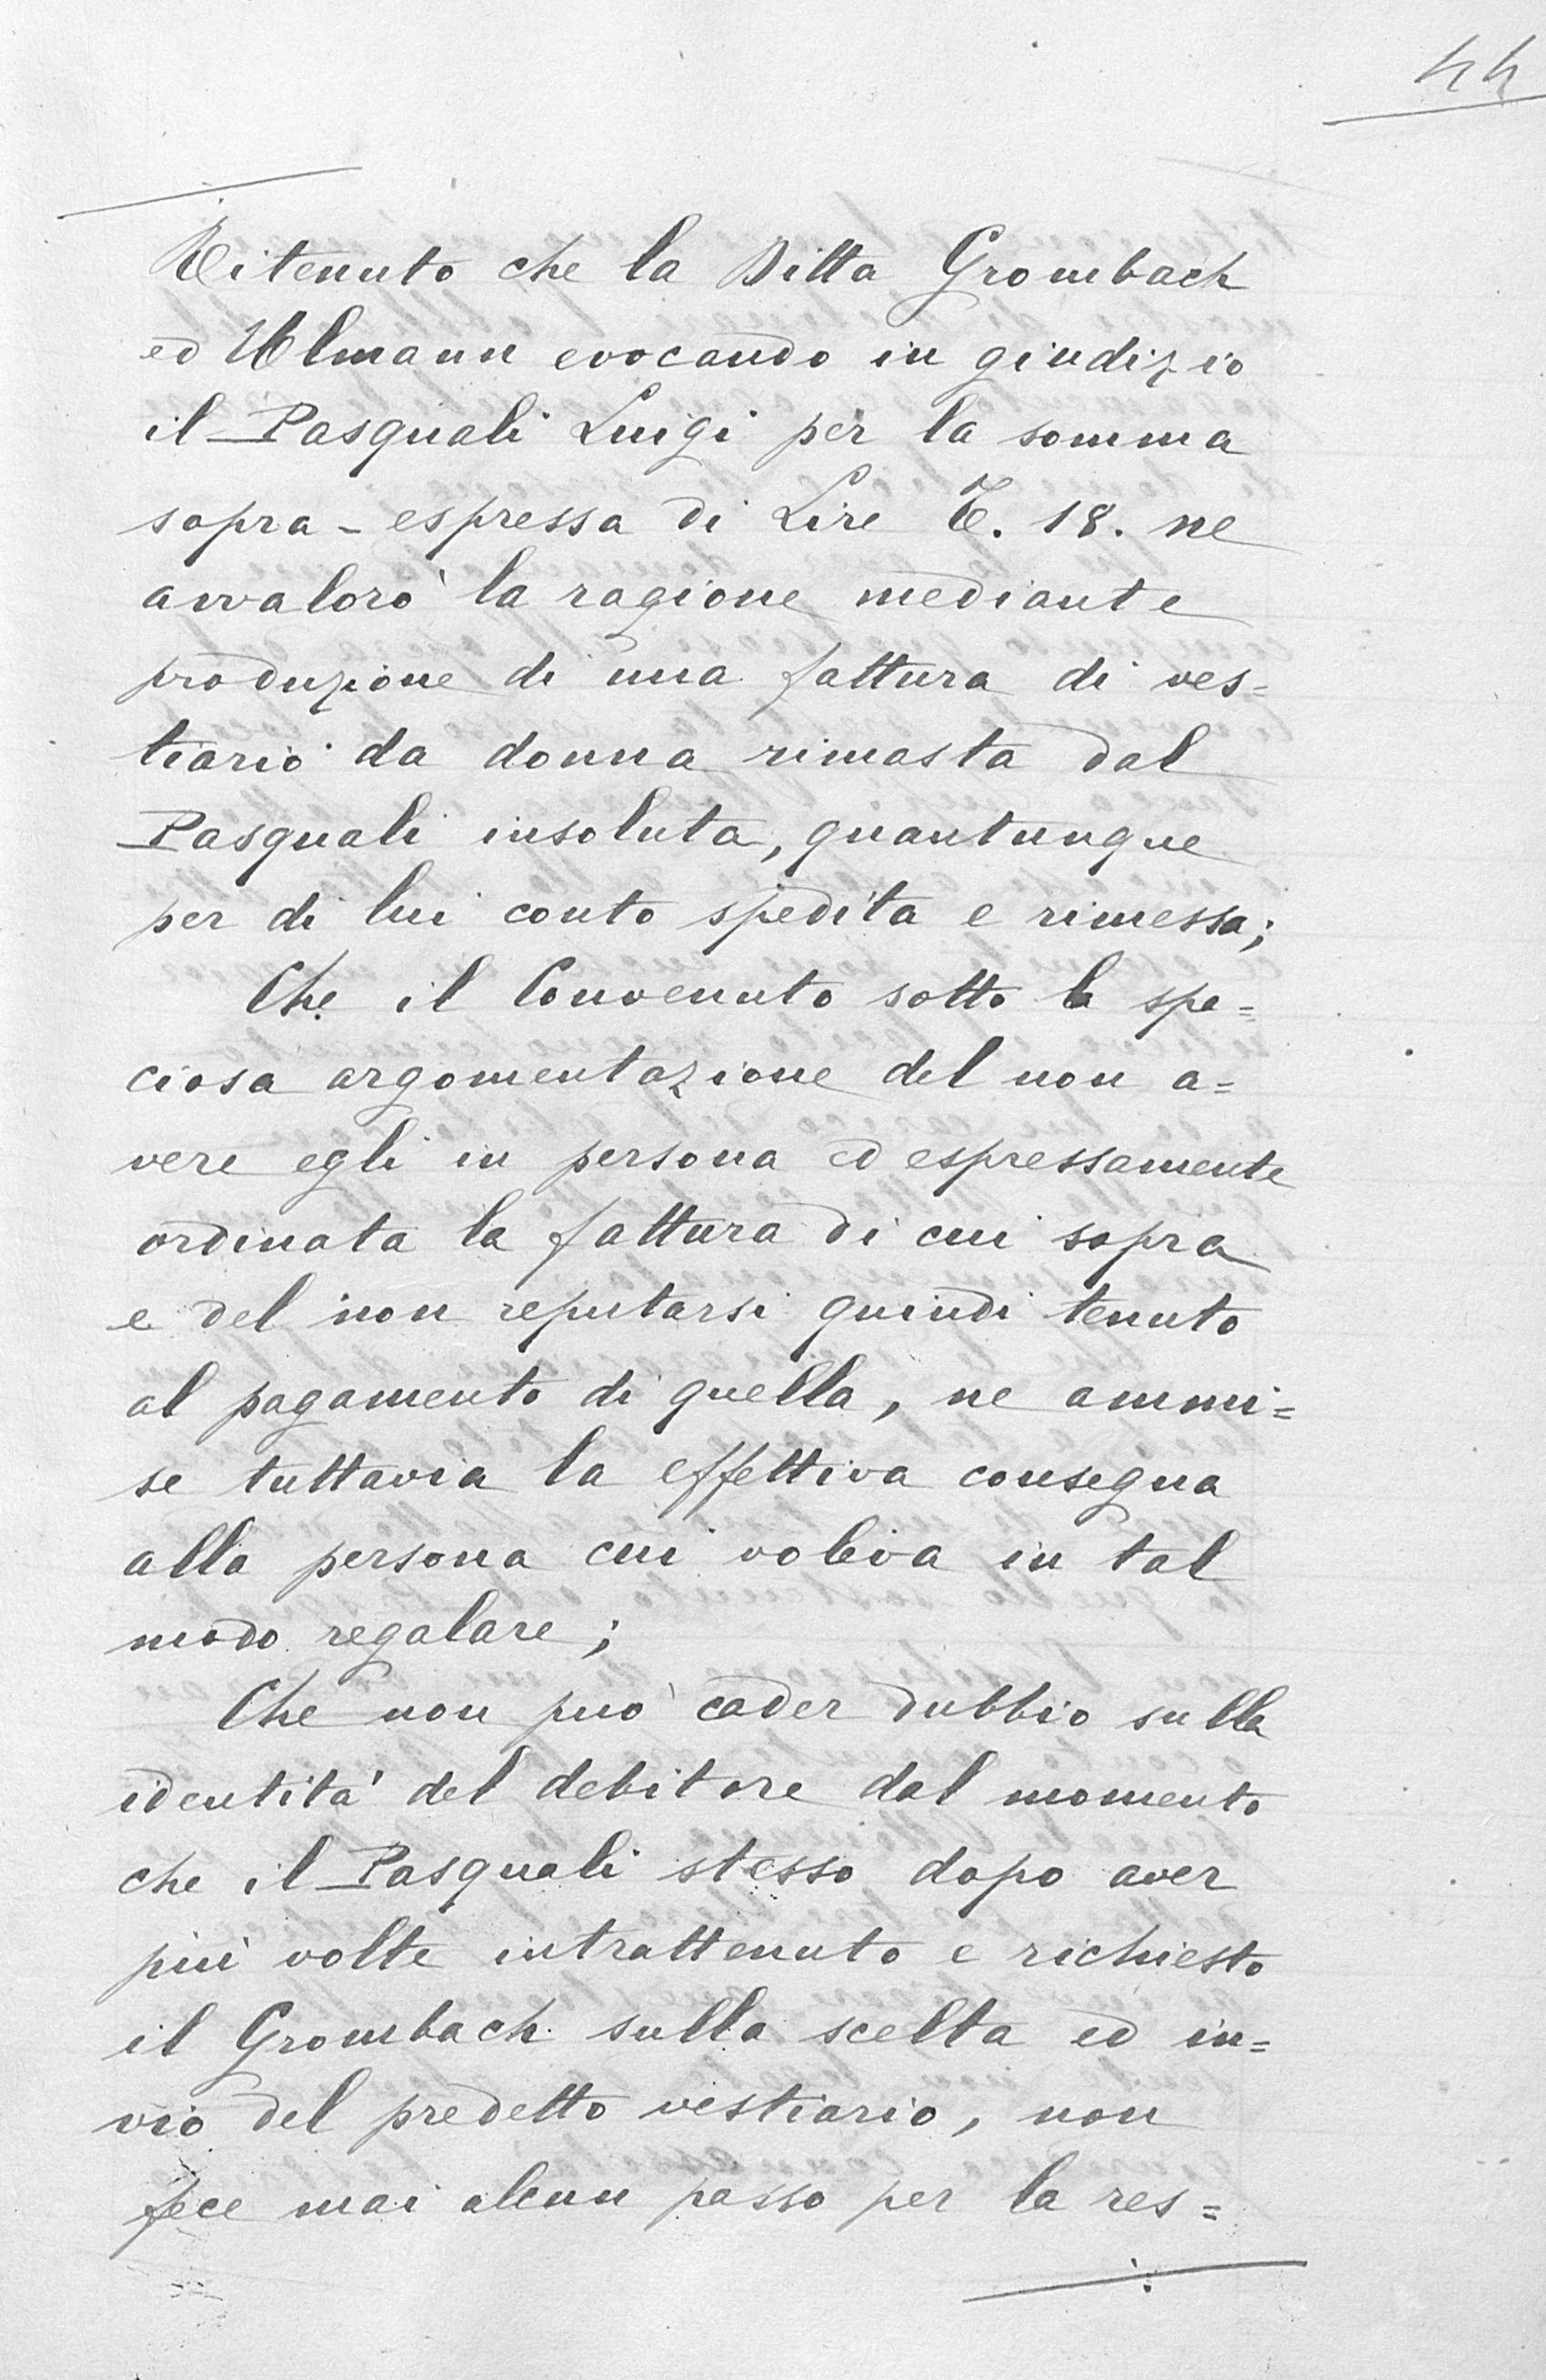 44
Ritenuto che la Ditta Grombach
ed Ulmann evocando in giudizio
il Pasquali Luigi per la somma
sopra-espressa di Lire T. 18. ne
avvalorò la ragione mediante
produzione di una fattura di ves=
tiario da donna rimasta dal
Pasquali insoluta, quantunque
per di lui conto spedita e rimessa;
Che il Convenuto sotto la spe=
ciosa argomentazione del non a=
vere egli in persona ed espressamente
ordinata la fattura di cui sopra
e del non reputarsi quindi tenuto
al pagamento di quella, ne ammi=
se tuttavia la effettiva consegna
alla persona cui voleva in tal
modo regalare;
Che non può cader dubbio sulla
identità del debitore dal momento
che il Pasquali stesso dopo aver
più volte intrattenuto e richiesto
il Grombach sulla scelta ed in=
vio del predetto vestiario, non
fece mai alcun passo per la res=